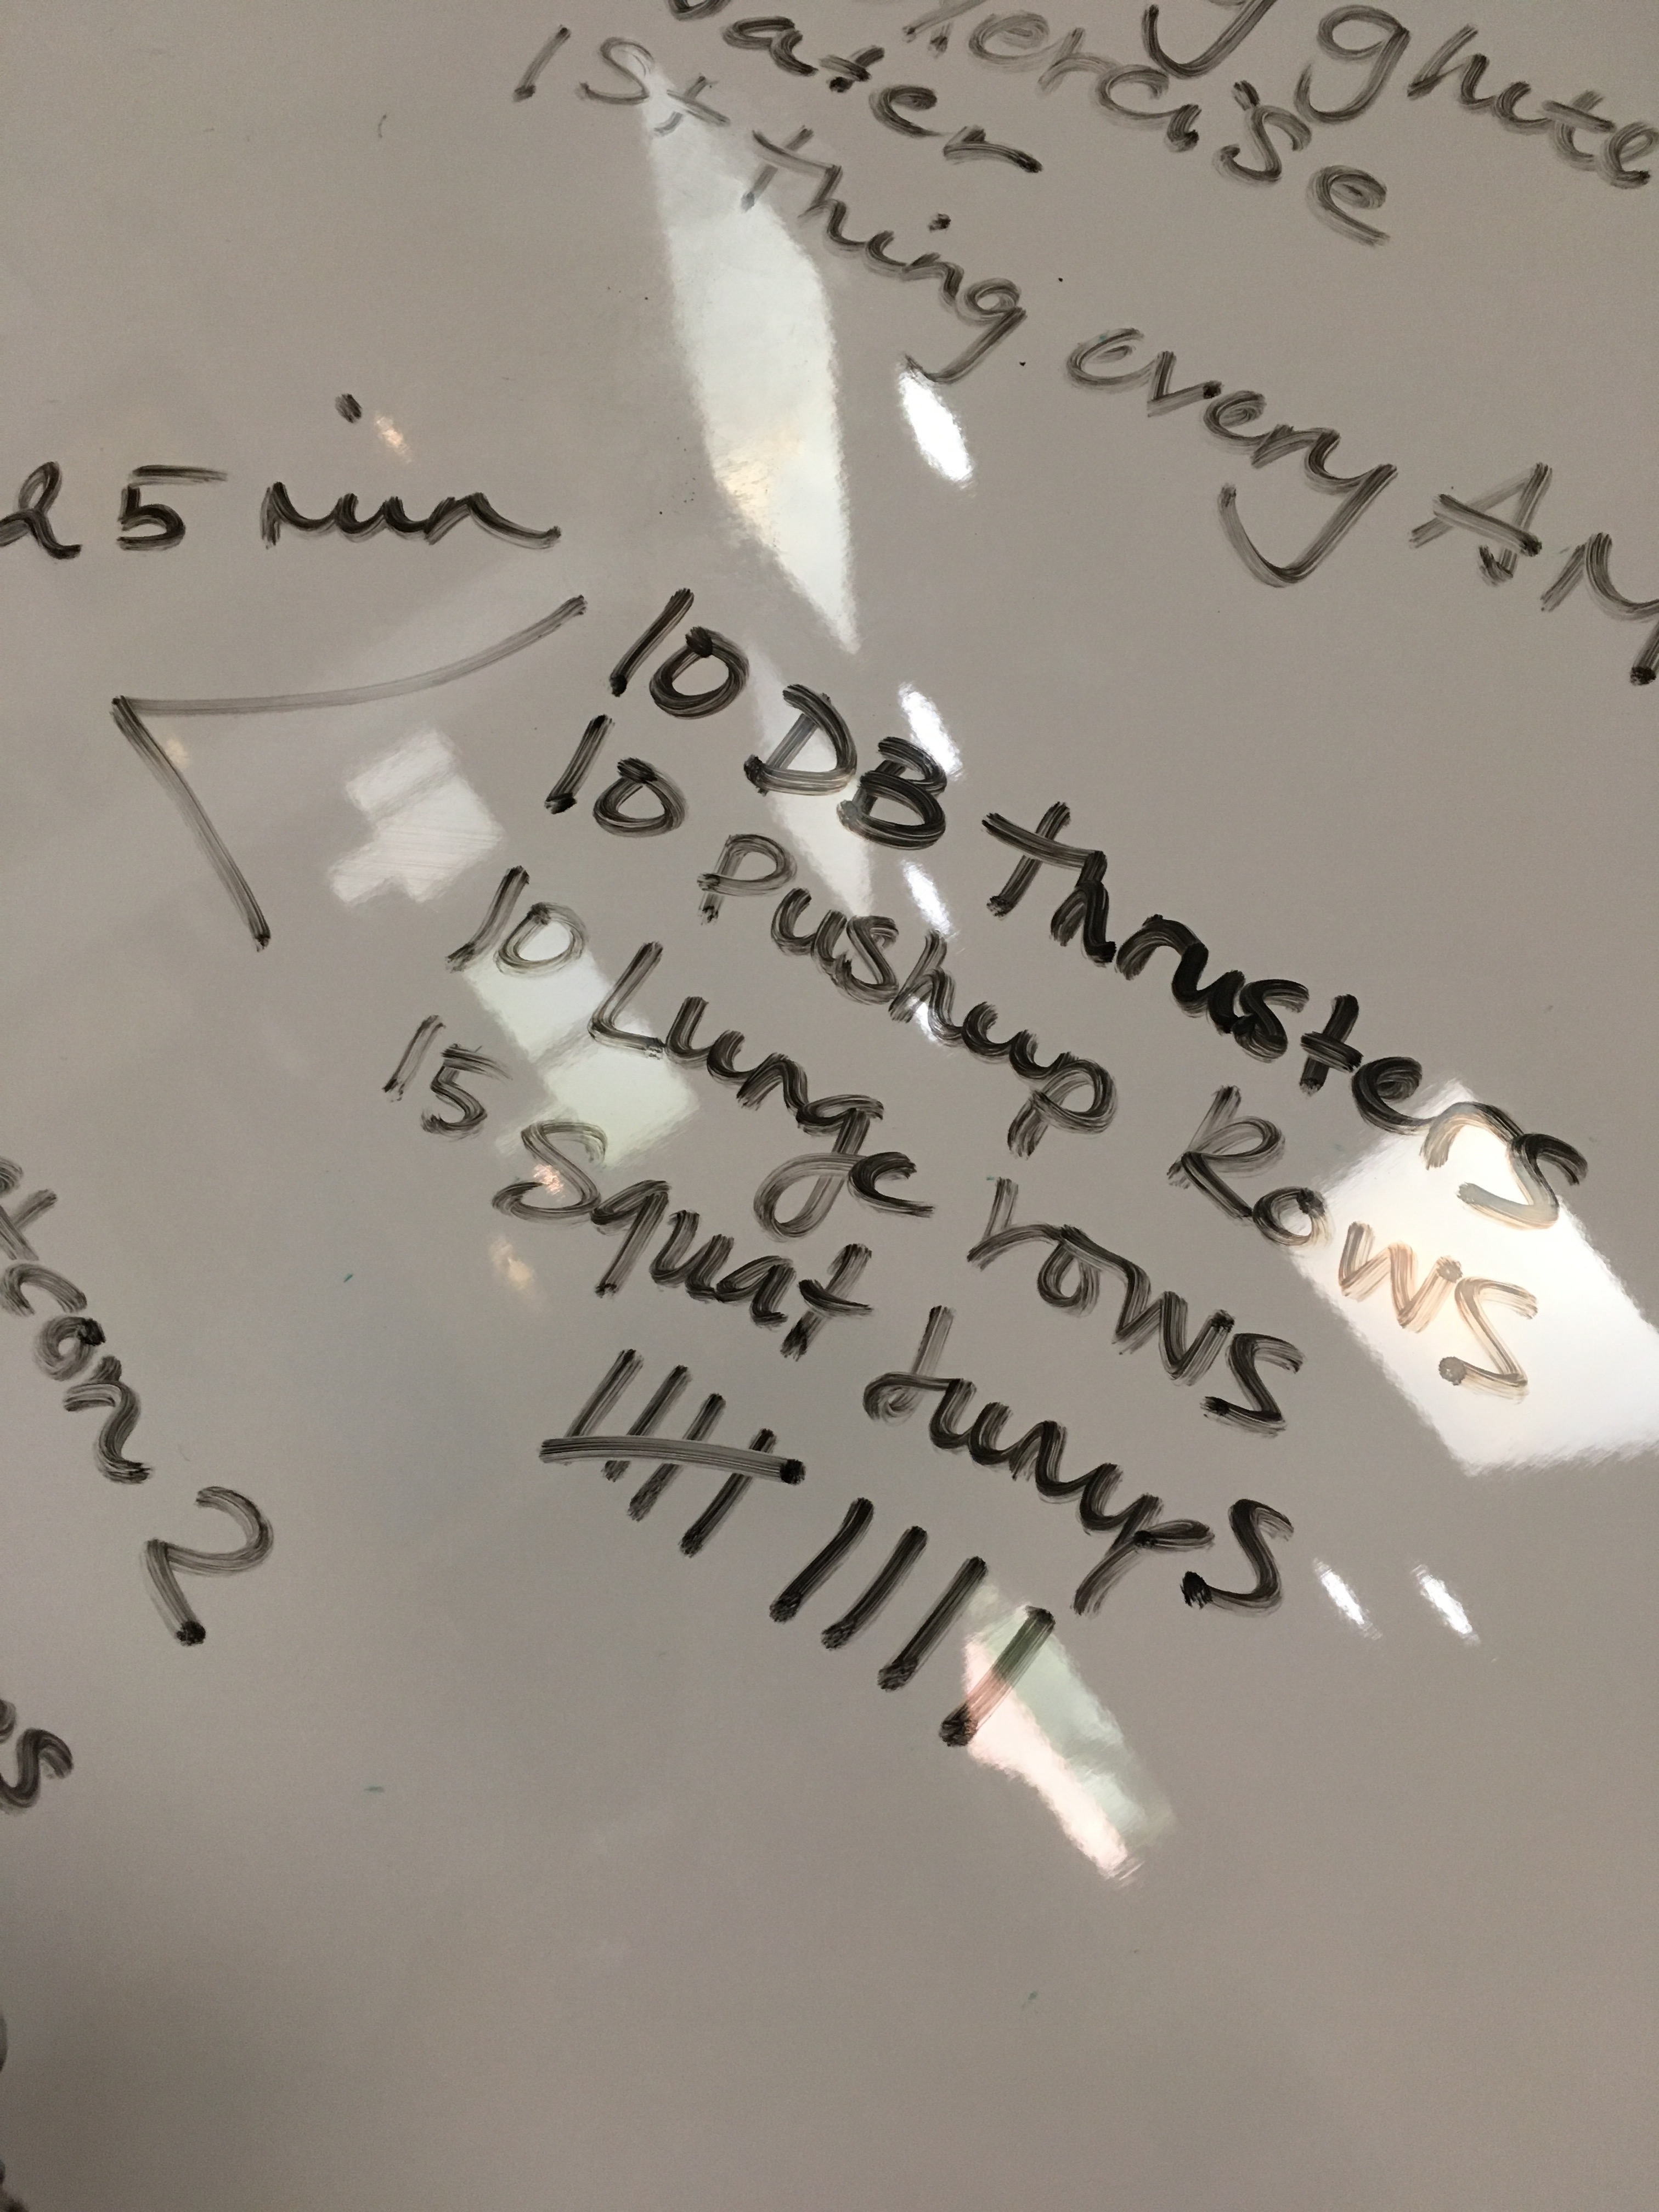 ghute
exercise
water
1st thing every AM
25 min
10 DB thrusters
10 Pushup Rows
10 Lunge rows
15 Squat Jumps
2